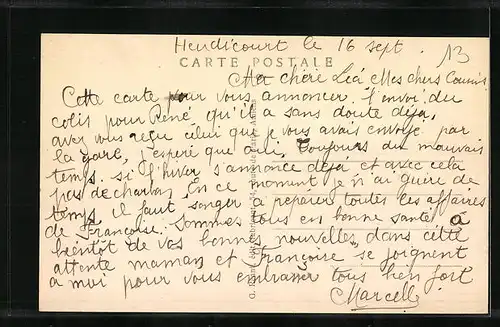 Heudicourt le 16 sept. 13
CARTE POSTALE
Ma chère Léa Mes chers Cousins
Cette carte pour vous annoncer l'envoi du
colis pour René qu'il a sans doute déjà,
avez vous reçu celui que je vous avais envoyé par
la gare, j'espère que oui. Toujours du mauvais
temps. si l'hiver s'annonce déjà et avec cela
pas de charbon. En ce moment je n'ai guère de
temps il faut songer à réparer toutes les affaires
de Françoise. Sommes tous en bonne santé à
bientôt de vos bonnes nouvelles, dans cette
attente maman et Françoise se joignent
à moi pour vous embrasser tous bien fort
Marcelle